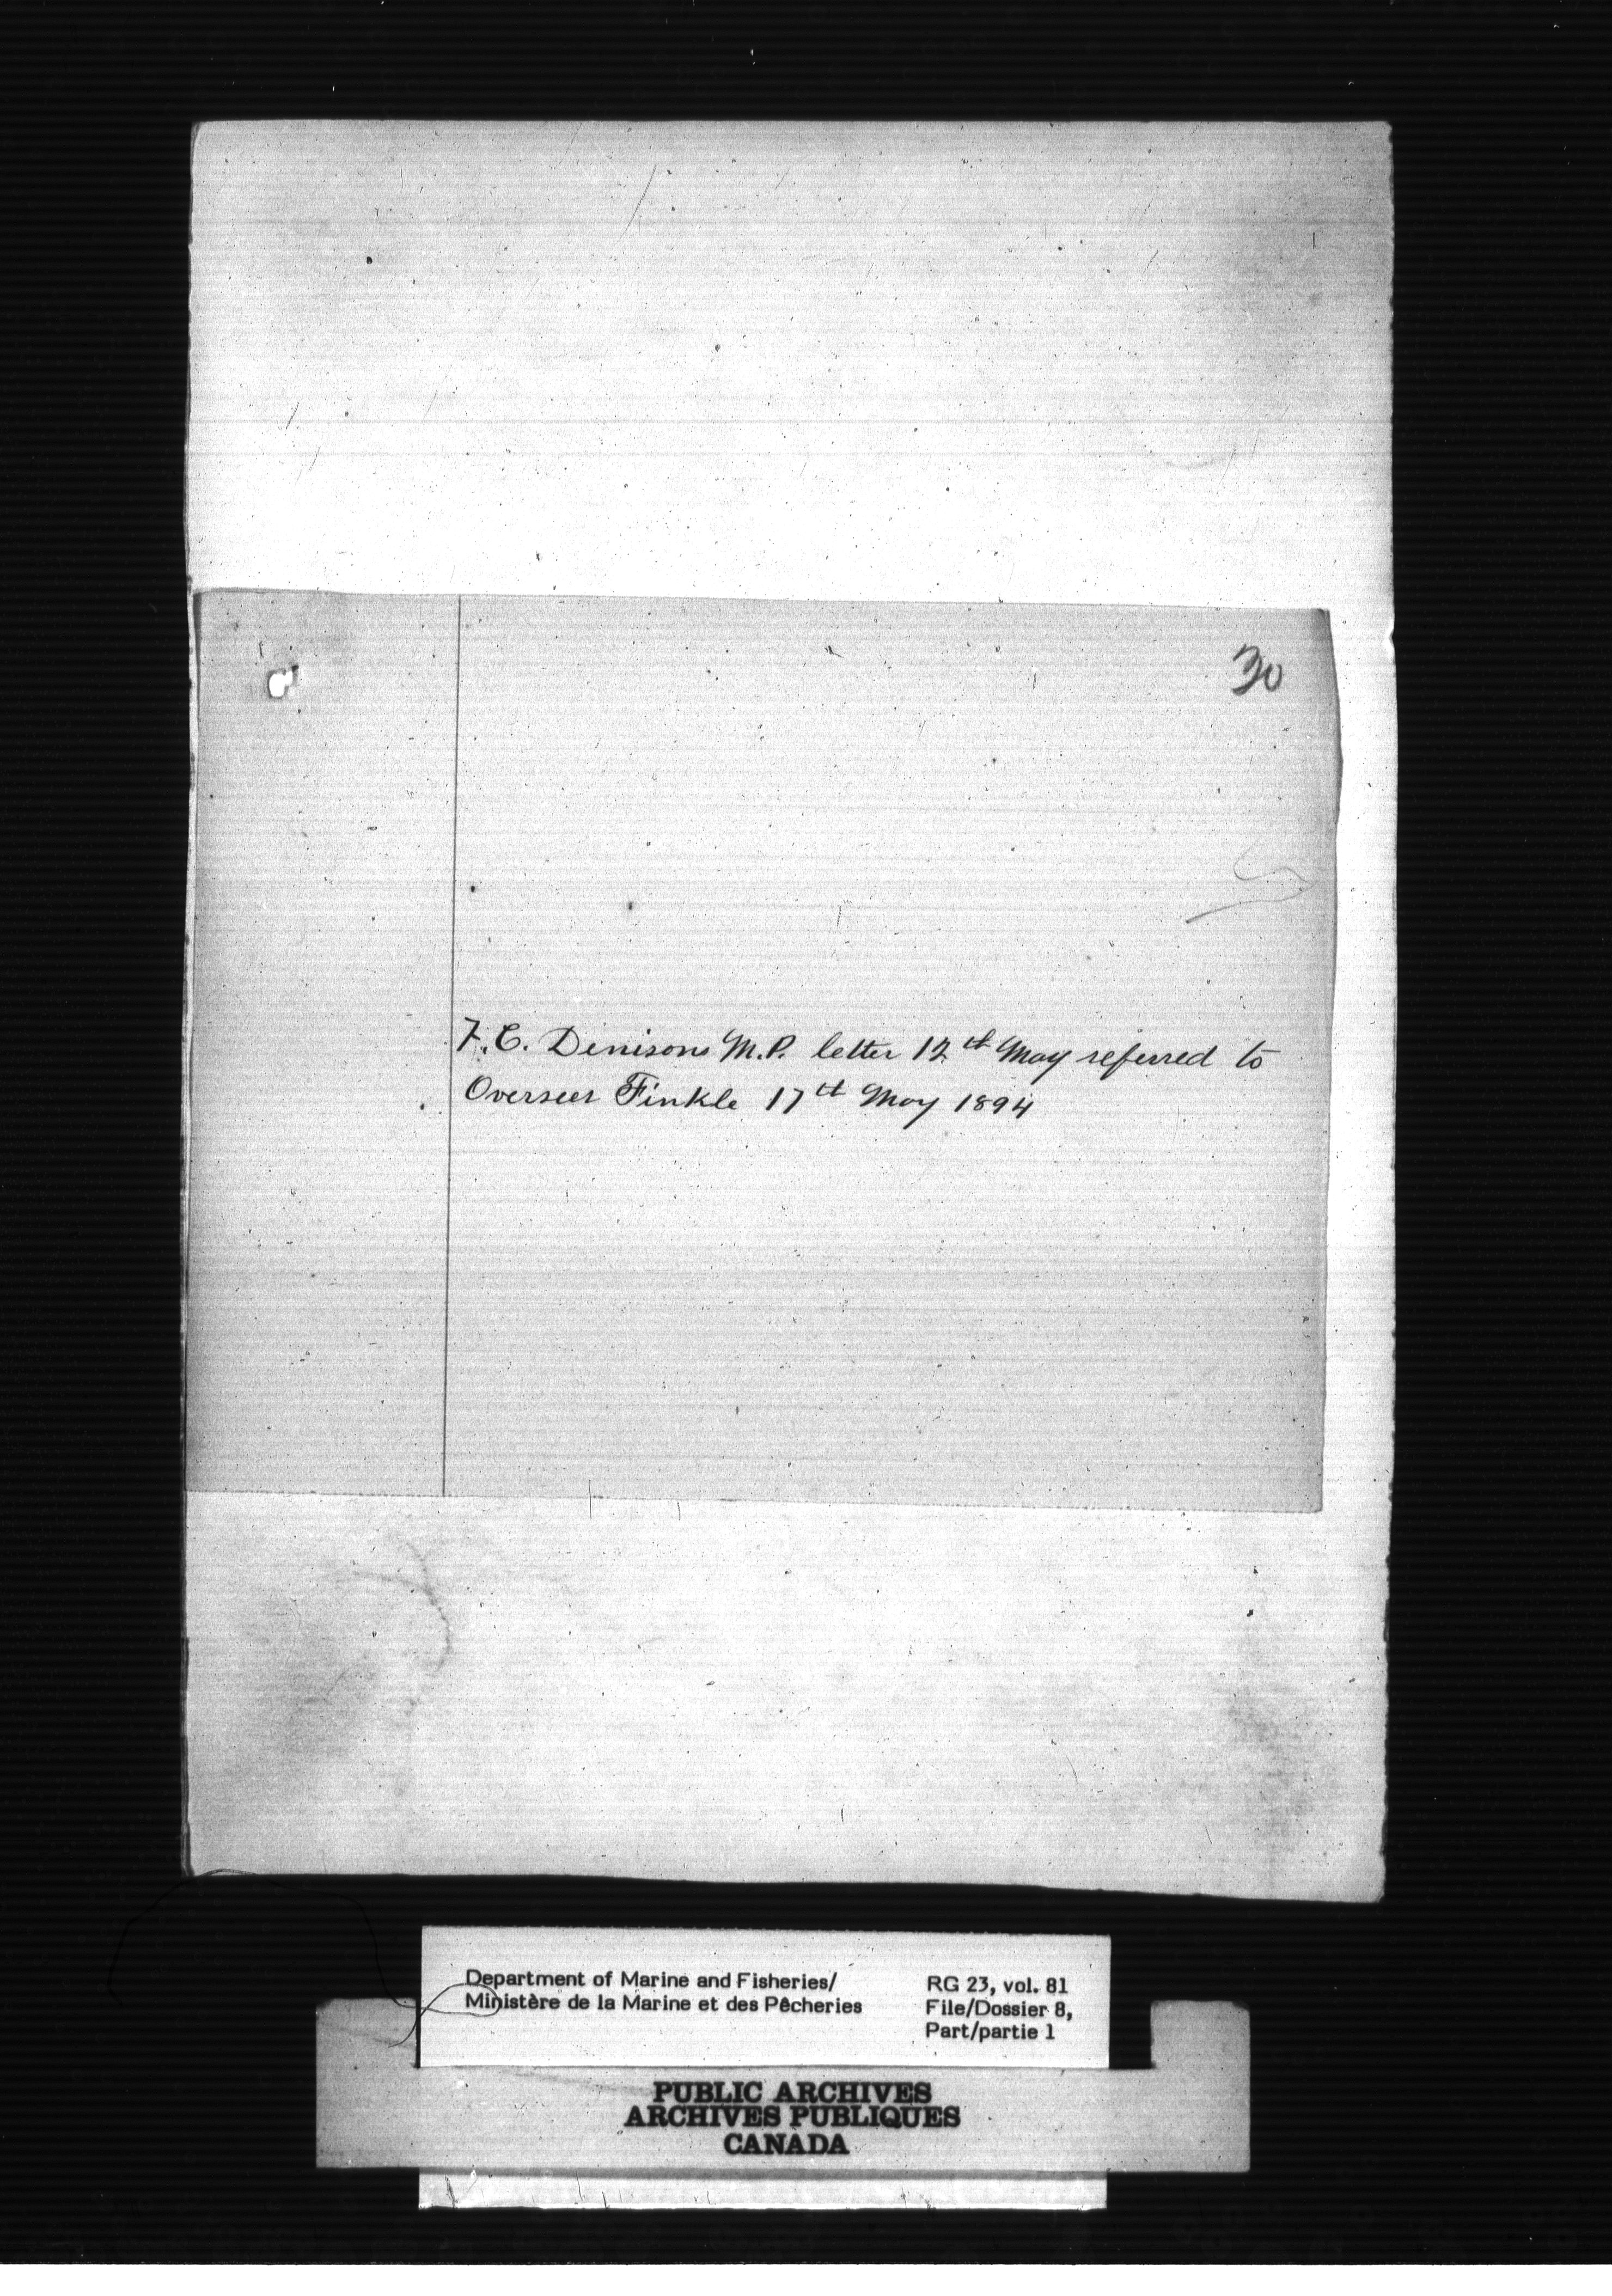 30
F. C. Denisons M.P. letter 12th May referred to
Overseer Finkle 17th May 1894
Department of Marine and Fisheries/
Ministère de la Marine et des Pêcheries
RG 23, vol. 81
File/Dossier 8,
Part/partie 1
PUBLIC ARCHIVES
ARCHIVES PUBLIQUES
CANADA